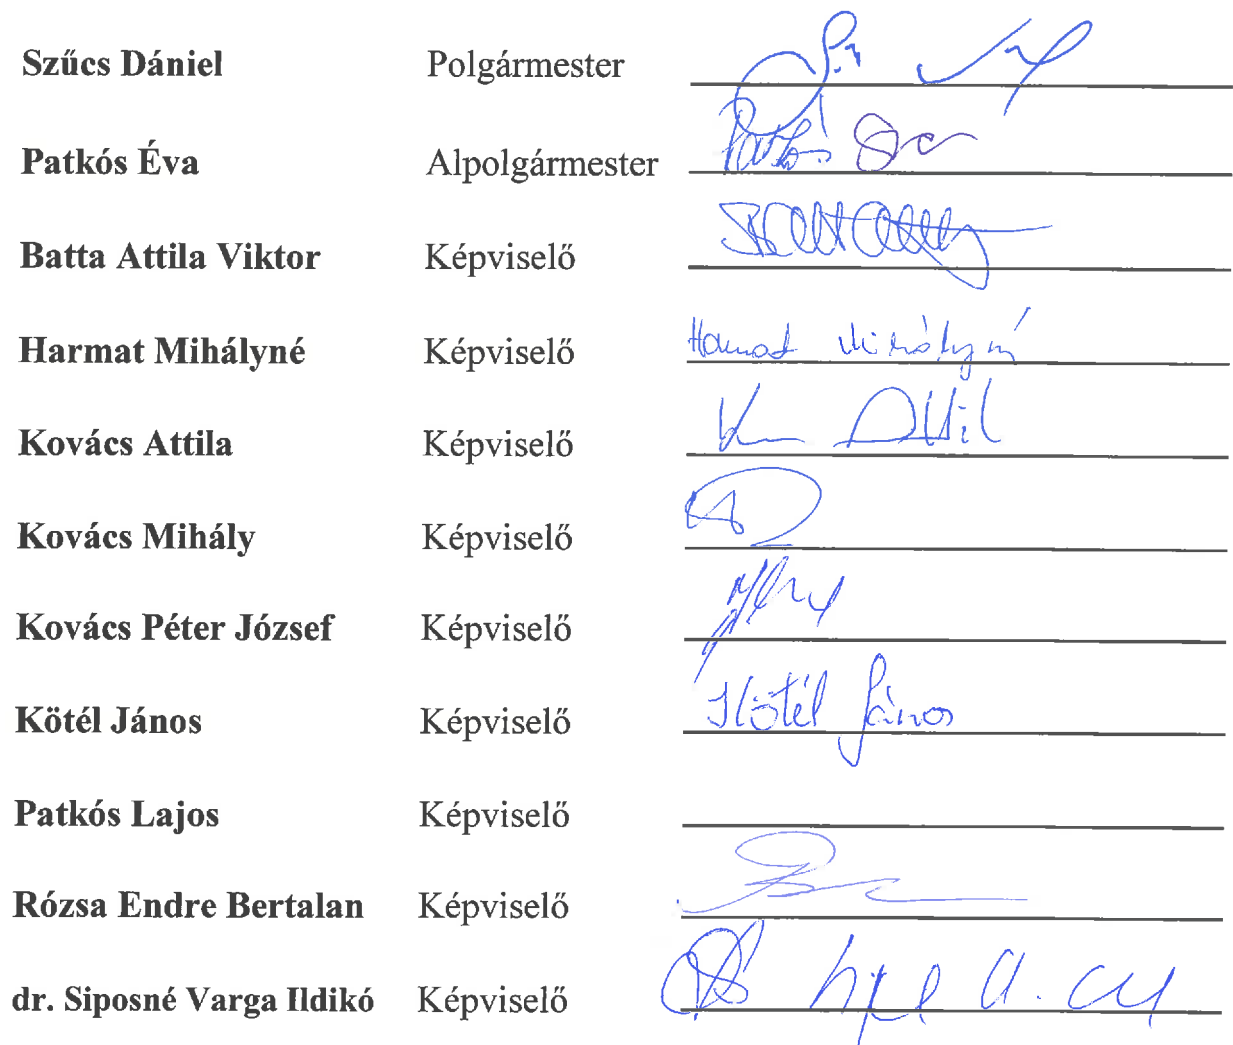 Szűcs Dániel Polgármester
Patkós Éva Alpolgármester Patkós Éva
Batta Attila Viktor Képviselő Batta
Harmat Mihályné Képviselő Harmat Mihályné
Kovács Attila Képviselő Attil
Kovács Mihály Képviselő
Kovács Péter József Képviselő
Kötél János Képviselő Kötél János
Patkós Lajos Képviselő
Rózsa Endre Bertalan Képviselő
dr. Siposné Varga Ildikó Képviselő